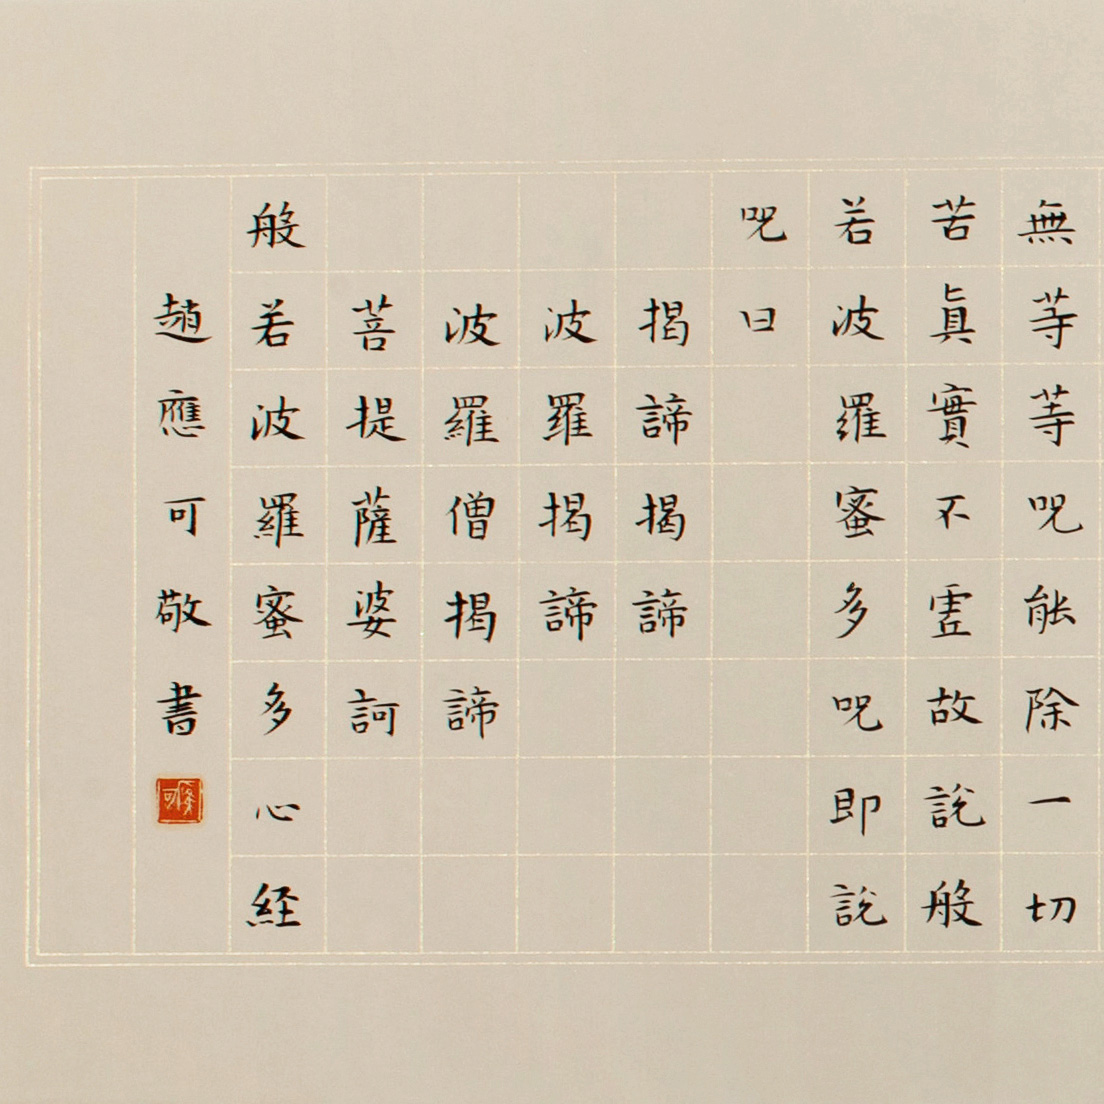 無等等呪能除一切
苦眞實不虛故說般
若波羅蜜多呪即說
呪曰
揭諦揭諦
波羅揭諦
波羅僧揭諦
菩提薩婆訶
般若波羅蜜多心経
趙應可敬書